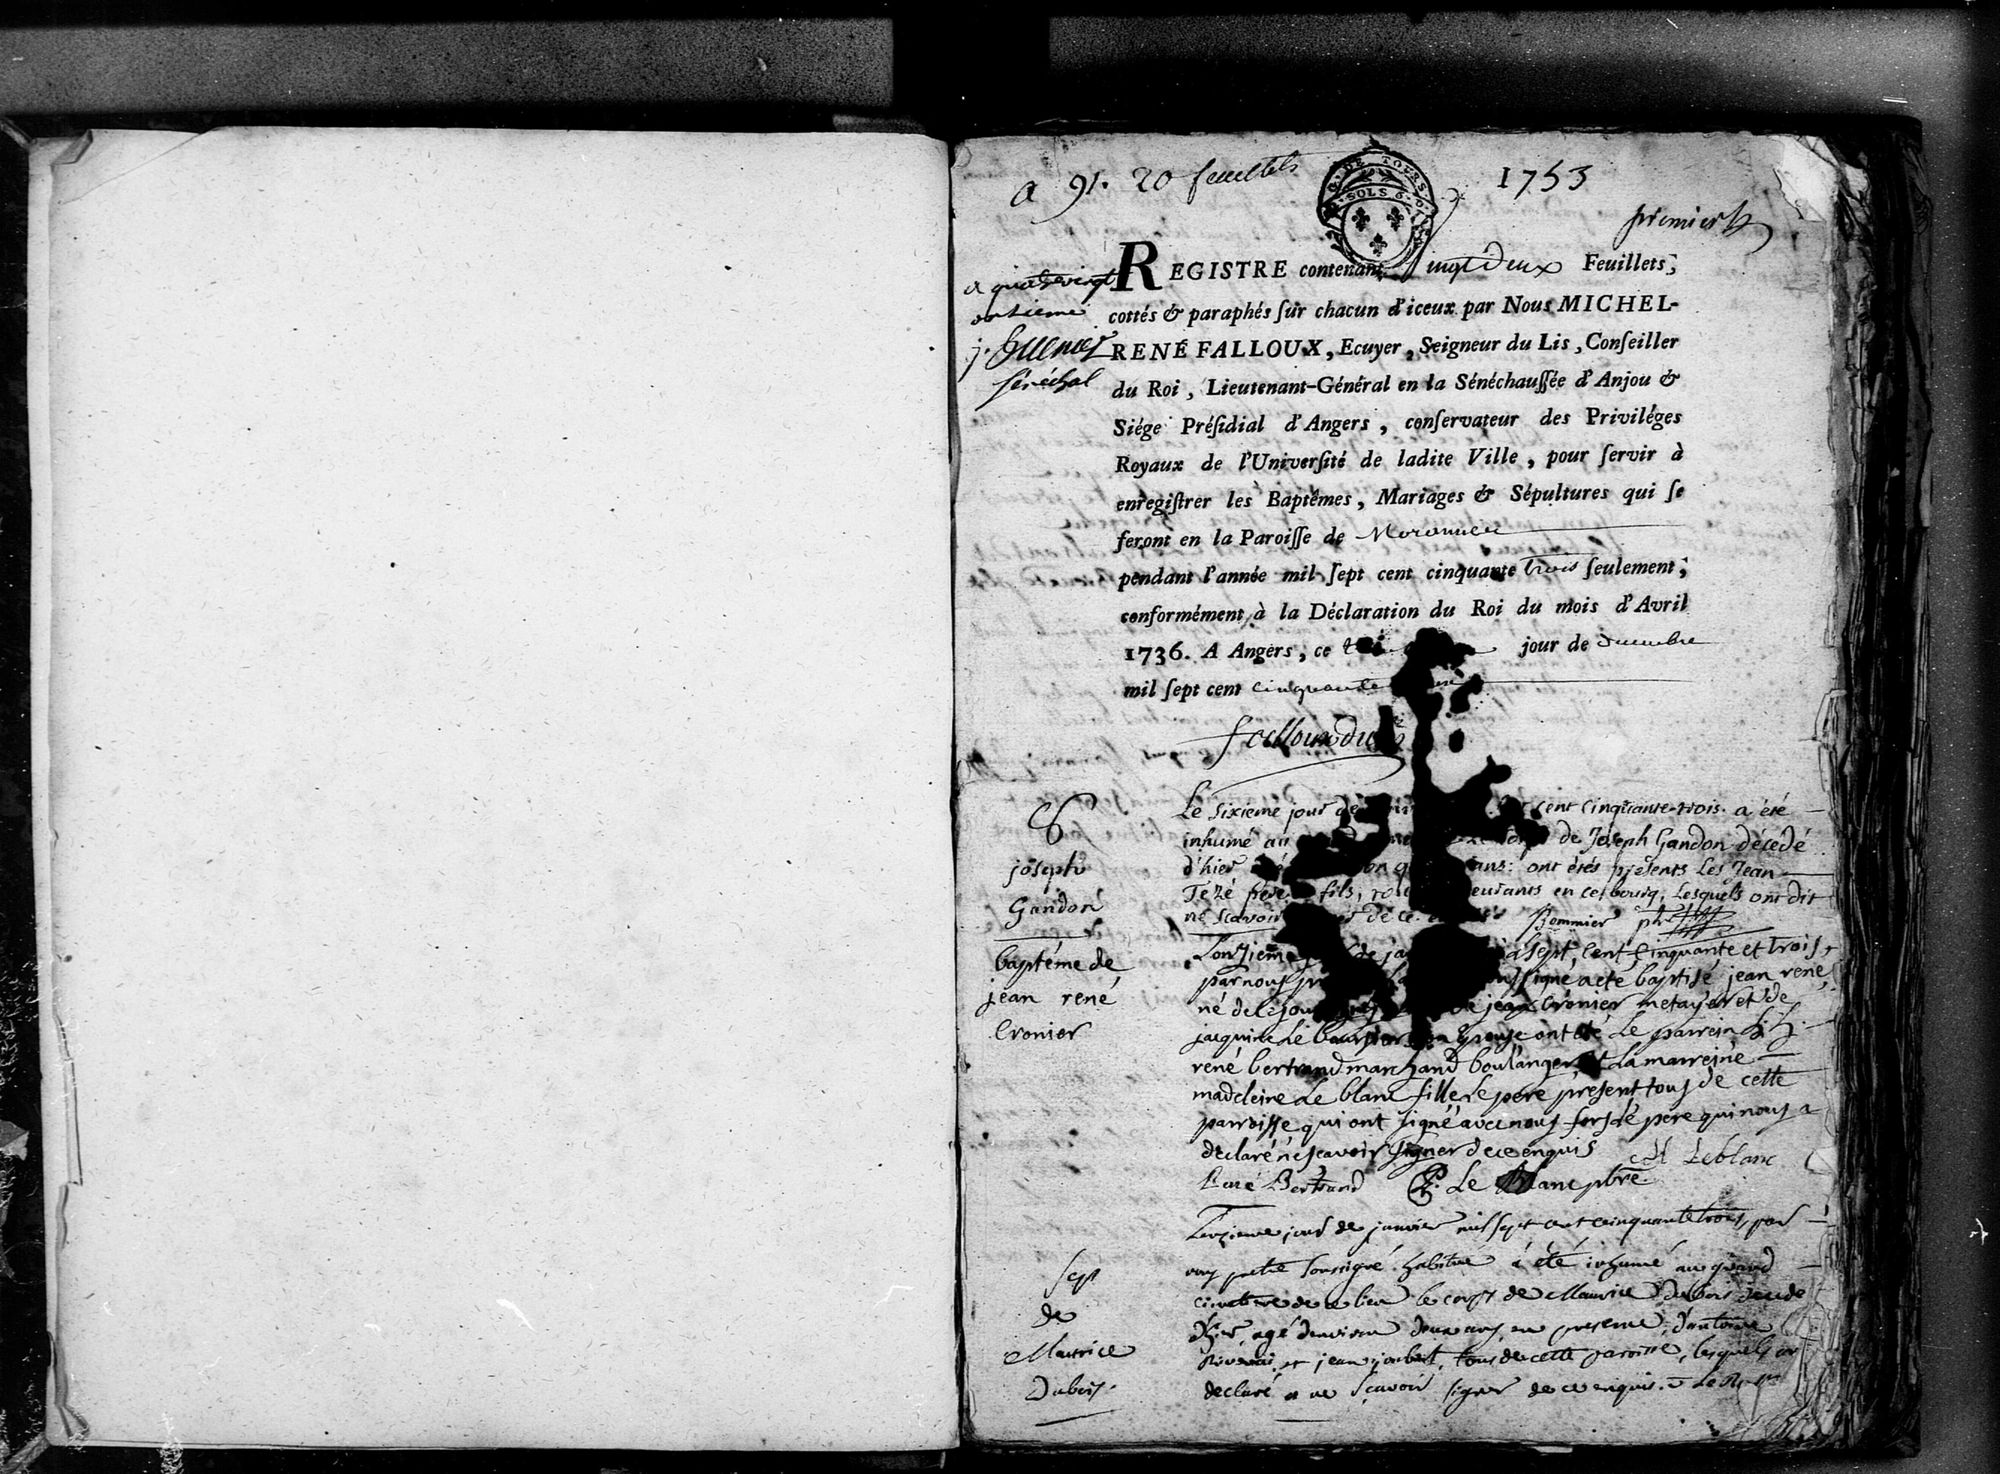 a 91. 20 feuillets
G. DE TOURS
SOLS 6 D
1753
premier
REGISTRE contenant vingt Deux Feuillets,
cottés & paraphés sur chacun d'iceux par Nous MICHEL-
RENÉ FALLOUX, Ecuyer, Seigneur du Lis, Conseiller
du Roi, Lieutenant-Général en la Sénéchaussée d'Anjou &
Siége Présidial d'Angers, conservateur des Priviléges
Royaux de l'Université de ladite Ville, pour servir à
enregistrer les Baptêmes, Mariages & Sépultures qui se
feront en la Paroisse de Morannes
pendant l'année mil sept cent cinquante trois seulement;
conformément à la Déclaration du Roi du mois d'Avril
1736. A Angers, ce jour de decembre
mil sept cent cinquante
a quatrevingt
onzieme
senéchal
Falloux du
S
joseph
Gandon
Le sixieme jour de cent cinquante-trois. a été
inhumé au de Joseph Gandon décédé
d'hier ans: ont étés présents les Jean
Tezé pere fils, en ce bourg, Lesquels ont dit
ne scavoir de ce. Pommier pbre
baptéme de
jean rené
Cronier
L'onzieme de sept cent cinquante et trois
par nous soussigné a eté baptisé jean rené
né de ce jour de jean Cronier metayer et de
jacquine Le epouse ont été Le parrein
rené bertrand marchand boulanger et La marreine
madeleine Le blanc fille Le pere present tous de cette
parroisse qui ont signé avec nous fors le pere qui nous a
declaré ne scavoir signer de ce enquis M Leblanc
René Bertrand P. Le Blanc pbre
sep
de
Maurice
Dubois.
L'onzieme jour de janvier mil sept cent cinquante trois, par
nous pretre soussigné habitué à été inhumé au grand
cimetiere de ce lieu le corps de Maurice Dubois decedé
d'hier, agé d'environ deux ans, en presence d'antoine
et jean joubert, tous de cette paroisse, lesquels ont
declaré ne scavoir signer de ce enquis.